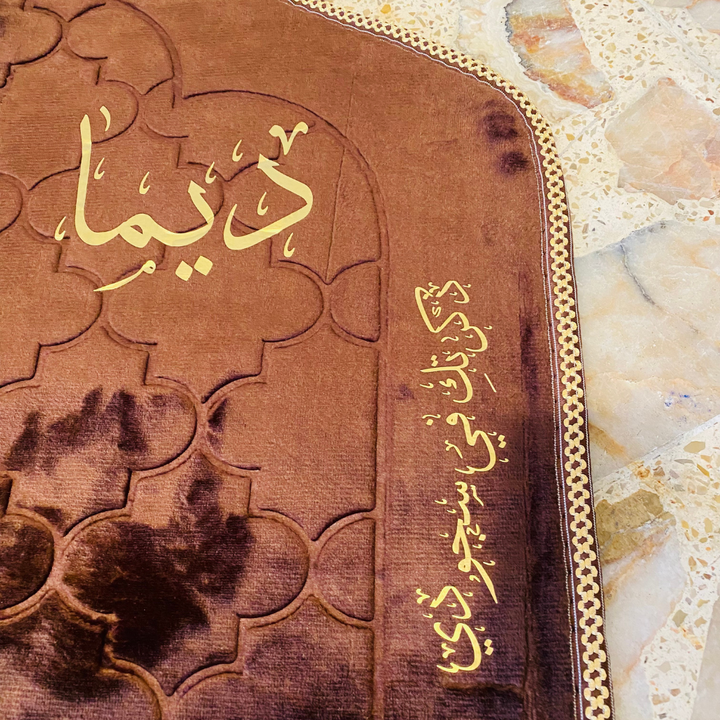 ديما
ذكرتكِ في سجودي